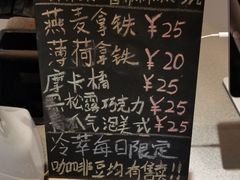 燕麦拿铁 ¥25
薄荷拿铁 ¥20
摩卡橘 ¥25
松露巧克力 ¥25
人气泡美式 ¥25
冷萃每日限定
咖啡豆均有售!!